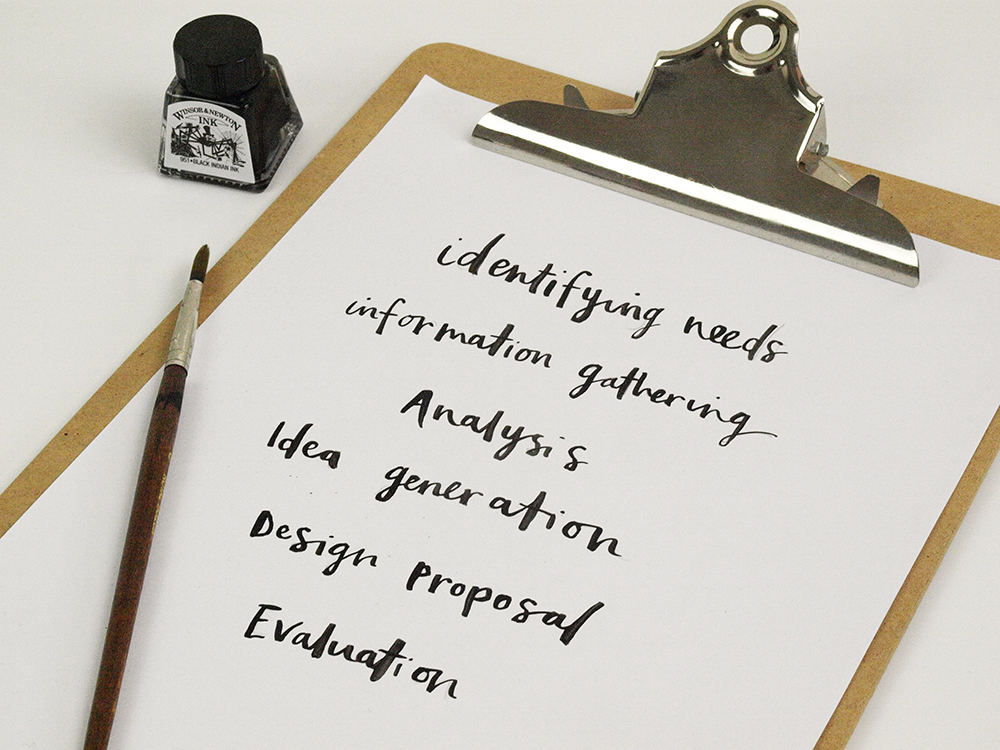 WINSOR & NEWTON
INK
951•BLACK INDIAN INK
identifying needs
information gathering
Analysis
Idea generation
Design Proposal
Evaluation